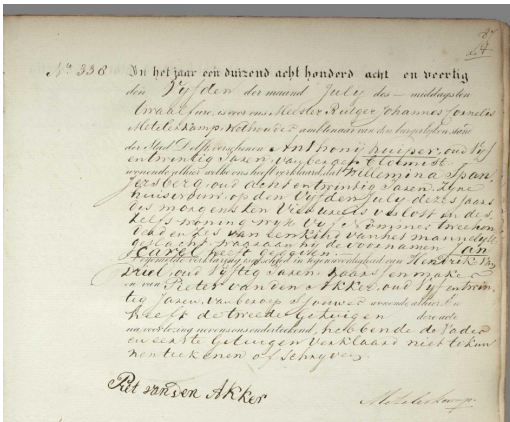 No. 336
In het jaar een duizend acht honderd acht en veertig
den Vyfden der maand July des middags ten
twaalf ure, is voor ons Meester Rutger Johannes Cornelis
Metelerkamp Wethouder ambtenaar van den burgerlyken stand
der Stad Delft verschenen Anthony Kuiper, oud vyf
en twintig Jaren, van beroep
wonende alhier welke ons heeft verklaard, dat Willemina Span
Jersberg, oud acht en twintig Jaren, Zyne
huisvrouw, op den Vyfden July dezes Jaars
des morgens ten Vier ure is verlost in des
zelfs woning Wyk Vyf Nommer twee hon
derd en zes van een kind van het mannelyk
geslacht, waaraan hy de voornamen Jan
Carel heeft gegeven
in tegenwoordigheid van Hendrik
oud vyftig Jaren, kaarsenmaker
en van Pieter van den Akker, oud vyf en twin
tig Jaren, van beroep Sjouwer wonende alhier. En
heeft de tweede getuigen deze acte
na voorlezing nevens ons onderteekend, hebbende de Vader
en eerste getuigen verklaard niet te kun
nen teekenen of schryven
Piet van den Akker
Metelerkamp